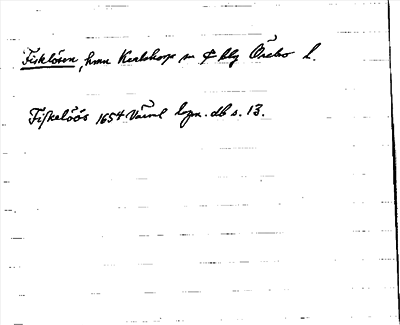 Fisklösen, hmn Karlskoga sn o blg Örebro l.
Fiskelöös 1654 Värml lopn. db s. 13.